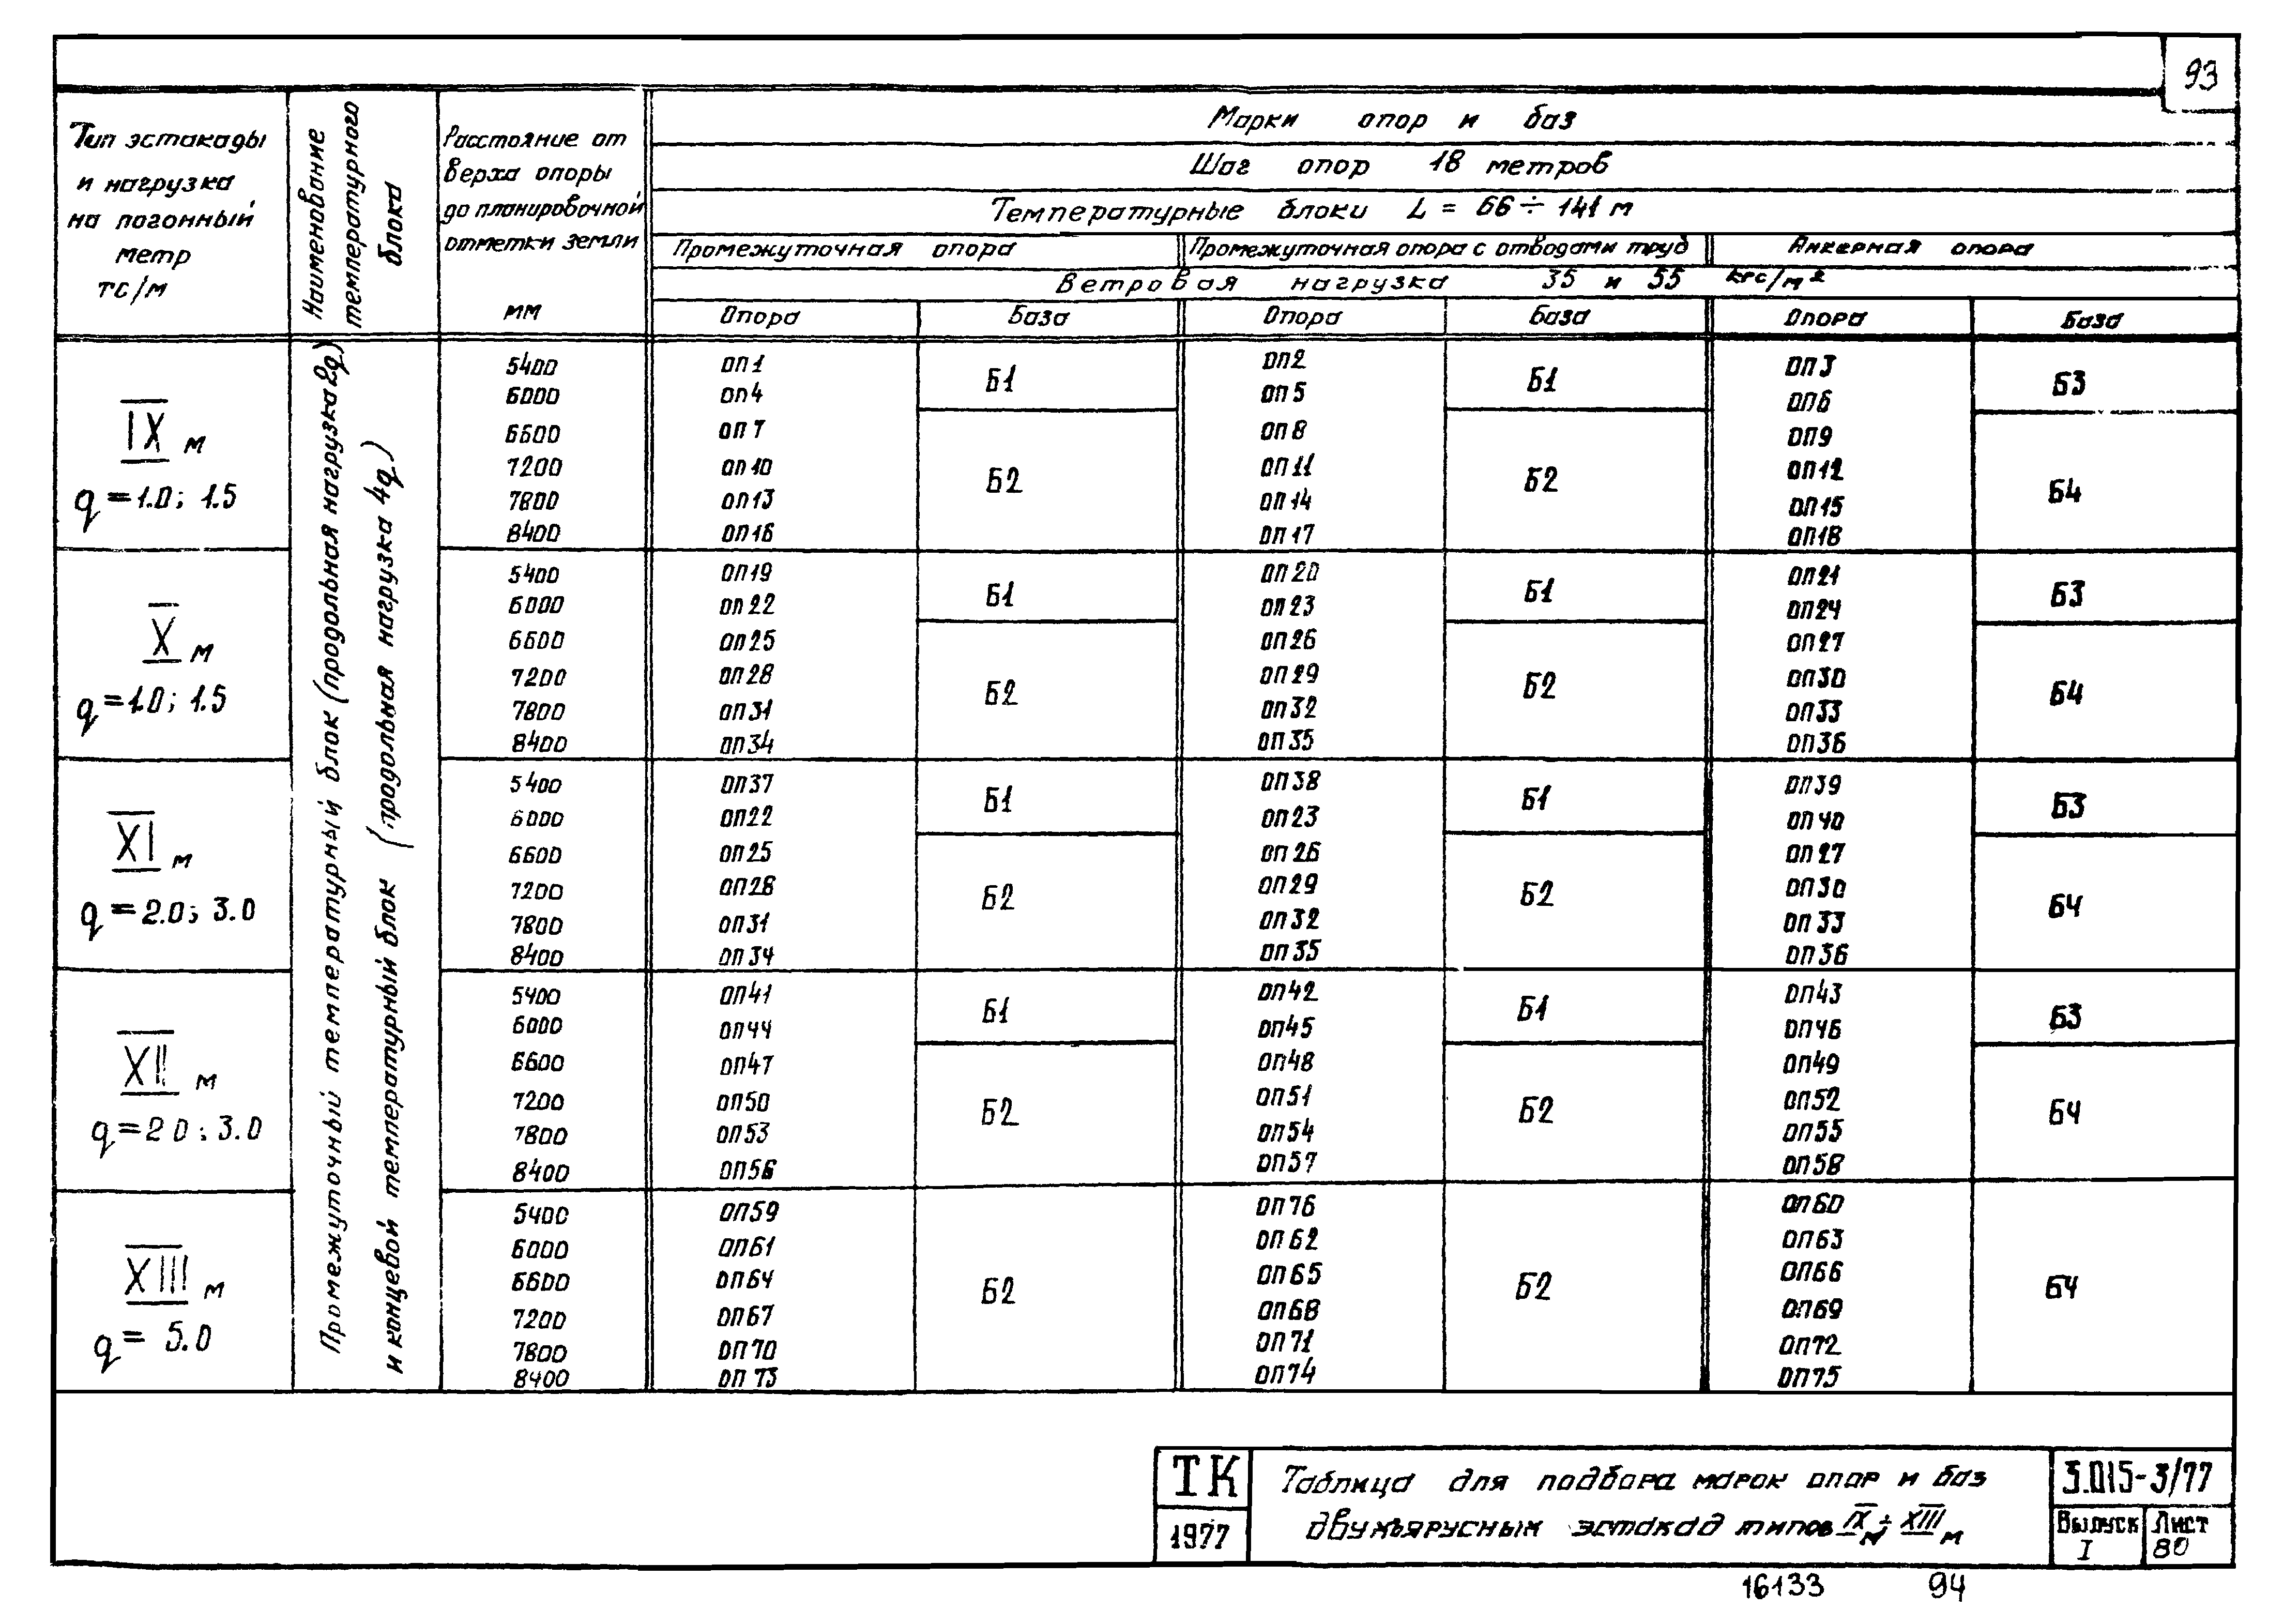 93
Тип эстакады
и нагрузка
на погонный
метр
тс/м
Наименование
температурного
блока
Расстояние от
верха опоры
до планировочной
отметки земли
мм
Марки опор и баз
Шаг опор 18 метров
Температурные блоки L = 66 ÷ 141 м
Промежуточная опора | Промежуточная опора с отводами труб | Анкерная опора
Ветровая нагрузка 35 и 55 кгс/м²
Опора | База | Опора | База | Опора | База
Промежуточный температурный блок (продольная нагрузка 2q)
и концевой температурный блок (продольная нагрузка 4q)
IX м
q = 1.0; 1.5
5400 | ОП1 | Б1 | ОП2 | Б1 | ОП3 | Б3
6000 | ОП4 | ОП5 | ОП6
6600 | ОП7 | Б2 | ОП8 | Б2 | ОП9 | Б4
7200 | ОП10 | ОП11 | ОП12
7800 | ОП13 | ОП14 | ОП15
8400 | ОП16 | ОП17 | ОП18
X м
q = 1.0; 1.5
5400 | ОП19 | Б1 | ОП20 | Б1 | ОП21 | Б3
6000 | ОП22 | ОП23 | ОП24
6600 | ОП25 | Б2 | ОП26 | Б2 | ОП27 | Б4
7200 | ОП28 | ОП29 | ОП30
7800 | ОП31 | ОП32 | ОП33
8400 | ОП34 | ОП35 | ОП36
XI м
q = 2.0; 3.0
5400 | ОП37 | Б1 | ОП38 | Б1 | ОП39 | Б3
6000 | ОП22 | ОП23 | ОП40
6600 | ОП25 | Б2 | ОП26 | Б2 | ОП27 | Б4
7200 | ОП28 | ОП29 | ОП30
7800 | ОП31 | ОП32 | ОП33
8400 | ОП34 | ОП35 | ОП36
XII м
q = 2 0; 3.0
5400 | ОП41 | Б1 | ОП42 | Б1 | ОП43 | Б3
6000 | ОП44 | ОП45 | ОП46
6600 | ОП47 | Б2 | ОП48 | Б2 | ОП49 | Б4
7200 | ОП50 | ОП51 | ОП52
7800 | ОП53 | ОП54 | ОП55
8400 | ОП56 | ОП57 | ОП58
XIII м
q = 5.0
5400 | ОП59 | Б2 | ОП76 | Б2 | ОП60 | Б4
6000 | ОП61 | ОП62 | ОП63
6600 | ОП64 | ОП65 | ОП66
7200 | ОП67 | ОП68 | ОП69
7800 | ОП70 | ОП71 | ОП72
8400 | ОП73 | ОП74 | ОП75
ТК
1977
Таблица для подбора марок опор и баз
двухъярусных эстакад типов IX м ÷ XIII м
3.015-3/77
Выпуск I
Лист 80
16133 94